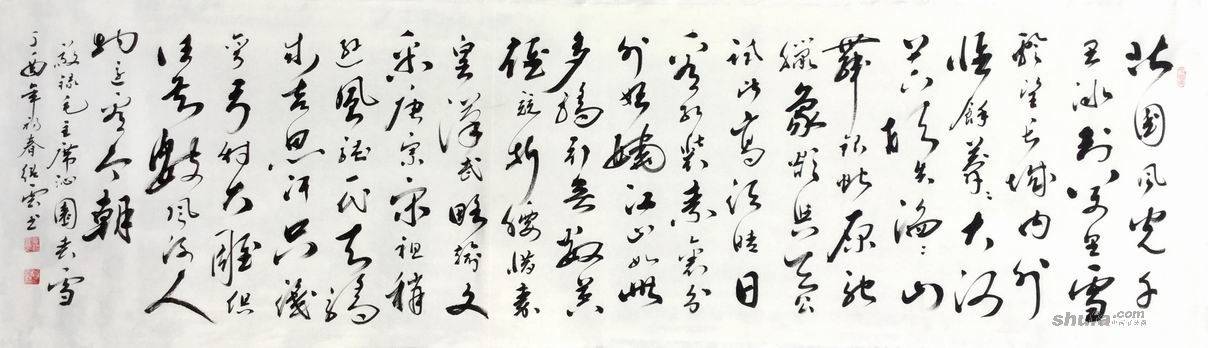 北國风光千
里冰封万里雪
飘望长城内外
惟餘莽莽大河
上下顿失滔滔山
舞银蛇原驰
蠟象欲与天公
试比高须晴日
看红装素裹分
外妖娆江山如此
多娇引无数英
雄竞折腰惜秦
皇漢武略输文
采唐宗宋祖稍
逊風骚一代天骄
成吉思汗只識
弯弓射大雕俱
往矣數风流人
物还看今朝
敬録毛主席沁園春雪
丁酉年初春 雲书
shufa.com